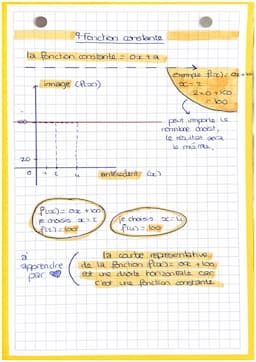 9-Fonction constante
la fonction constante = 0x + a
exemple f(x) = 0x + 100
x = 2
2 × 0 + 100
= 100
image (f(x))
peut importe le
nombre choisi,
le résultat sera
le même.
100
20
0 1 2 4 antécédent (x)
f(x) = 0x + 100
je choisis x = 2
f(2) = 100
je choisis x = 4
f(4) = 100
à
apprendre
par ♥
la courbe représentative
de la fonction f(x) = 0x + 100
est une droite horizontale car
c'est une fonction constante